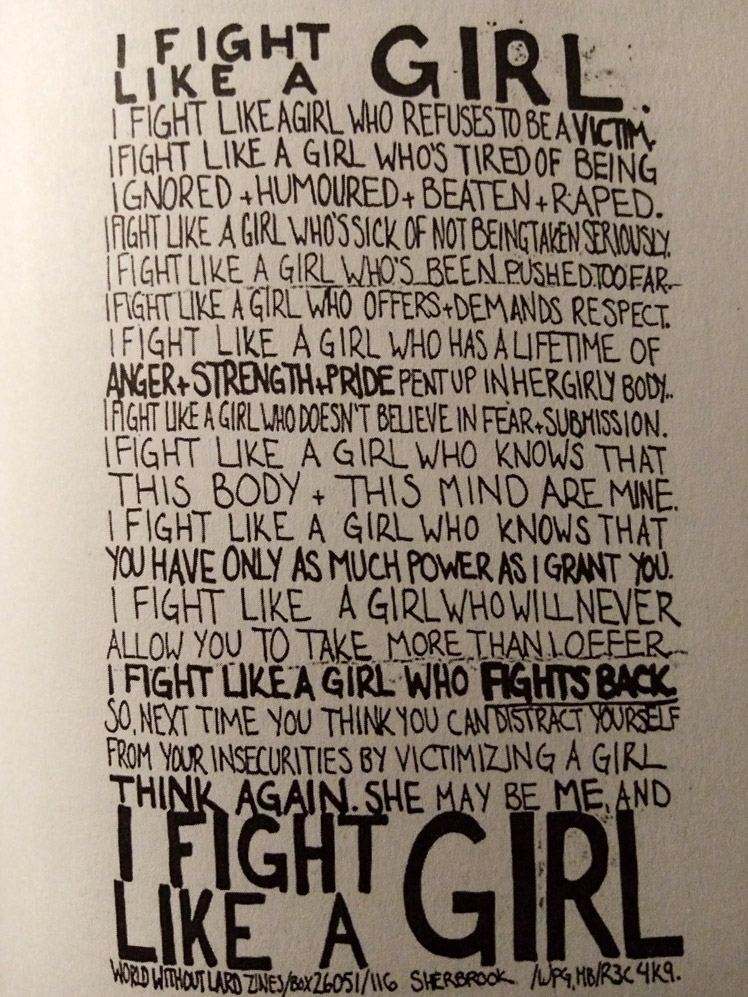 I FIGHT
LIKE A GIRL.
I FIGHT LIKE A GIRL WHO REFUSES TO BE A VICTIM.
I FIGHT LIKE A GIRL WHO'S TIRED OF BEING
IGNORED + HUMOURED + BEATEN + RAPED.
I FIGHT LIKE A GIRL WHO'S SICK OF NOT BEING TAKEN SERIOUSLY.
I FIGHT LIKE A GIRL WHO'S BEEN PUSHED TOO FAR.
I FIGHT LIKE A GIRL WHO OFFERS + DEMANDS RESPECT.
I FIGHT LIKE A GIRL WHO HAS A LIFETIME OF
ANGER + STRENGTH + PRIDE PENT UP IN HER GIRLY BODY.
I FIGHT LIKE A GIRL WHO DOESN'T BELIEVE IN FEAR + SUBMISSION.
I FIGHT LIKE A GIRL WHO KNOWS THAT
THIS BODY + THIS MIND ARE MINE.
I FIGHT LIKE A GIRL WHO KNOWS THAT
YOU HAVE ONLY AS MUCH POWER AS I GRANT YOU.
I FIGHT LIKE A GIRL WHO WILL NEVER
ALLOW YOU TO TAKE MORE THAN I OFFER.
I FIGHT LIKE A GIRL WHO FIGHTS BACK.
SO, NEXT TIME YOU THINK YOU CAN DISTRACT YOURSELF
FROM YOUR INSECURITIES BY VICTIMIZING A GIRL
THINK AGAIN. SHE MAY BE ME, AND
I FIGHT
LIKE A GIRL
WORLD WITHOUT LARD ZINES/BOX 26051/116 SHERBROOK /WPG, MB/R3C 4K9.